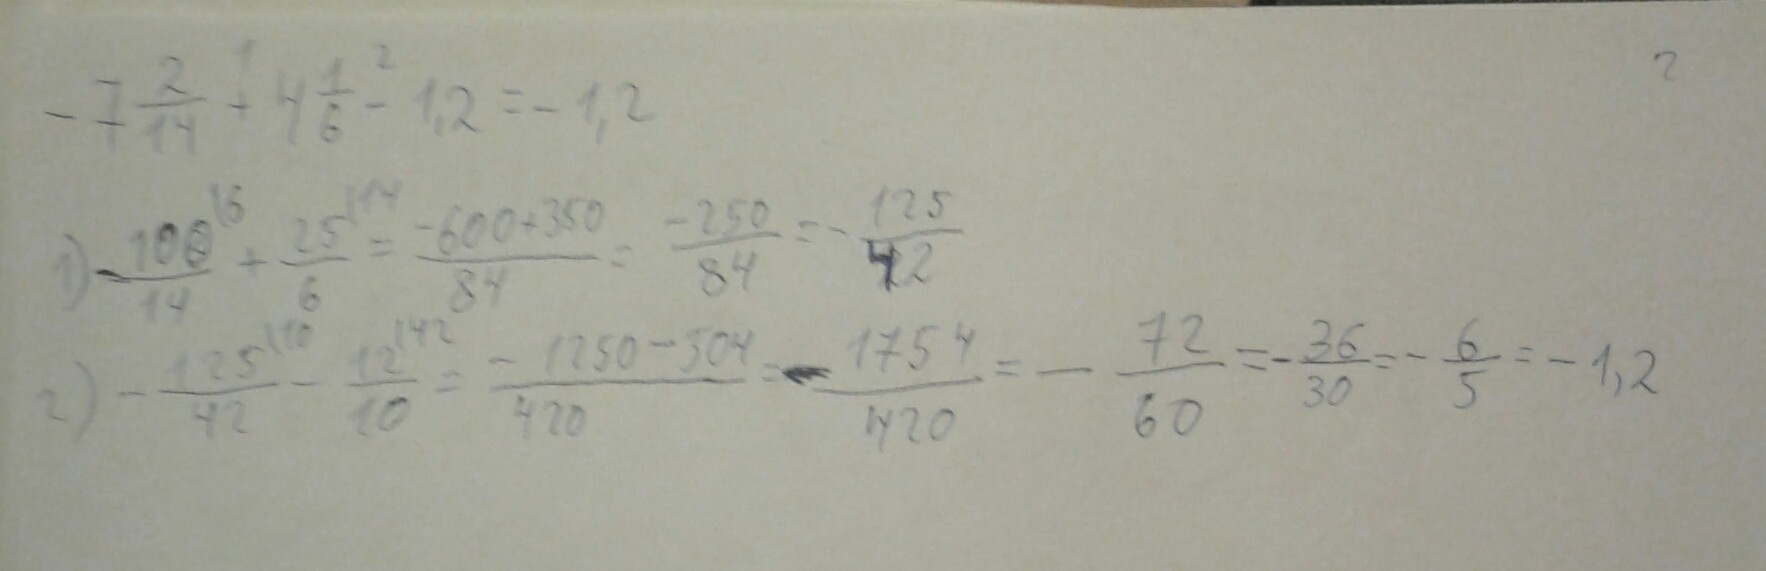 ?
-7 2/14 +¹ 4 1/6 -² 1,2 = - 1,2
1) - 100\6/14 + 25\14/6 = -600+350/84 = -250/84 = - 125/42
2) - 125\10/42 - 12\42/10 = - 1250 - 504/420 = - 1754/420 = - 72/60 = - 36/30 = - 6/5 = - 1,2